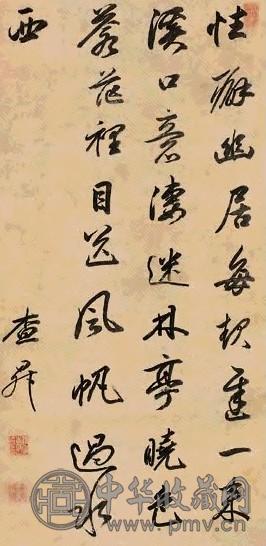 性癖幽居每起遲一来
溪口意淒迷林亭曉色
蒼茫裡目送風帆過水
西
查昇
中华收藏网
www.pmv.cn